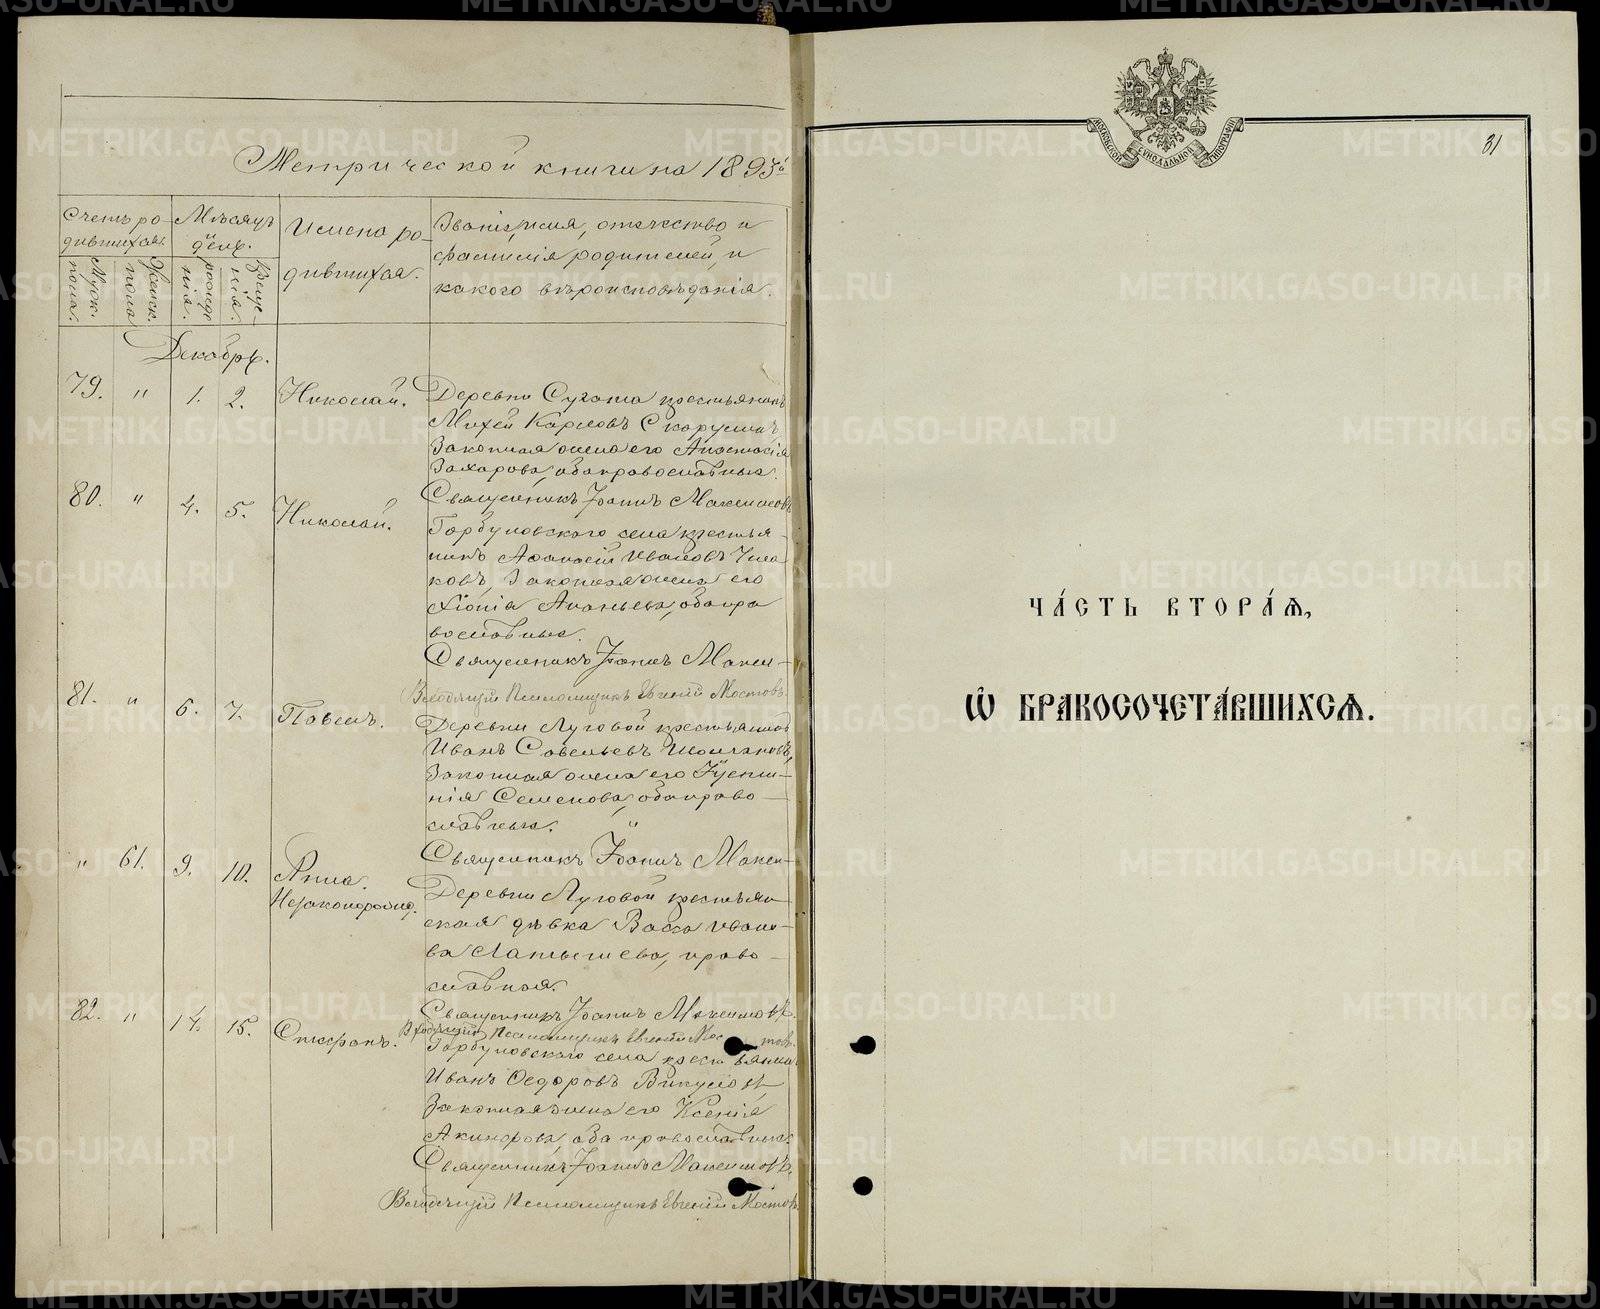 Метрической книги на 1893 г.
Счетъ ро-
дившихся.
Мѣсяцъ
и
день.
Имена ро-
дившихся.
Званіе, имя, отчество и
фамилія родителей, и
какого вѣроисповѣданія.
Муж. пола.
Женск. пола
рожде нія.
креще- нія.
Декабрь.
79. " 1. 2. Николай. Деревни Сугата крестьянинъ
Михей Карповъ
Законная жена его Анастасія
Захарова, оба православные.
Священникъ Іоаннъ Максимовъ
80. " 4. 5. Николай.
Горбуновскаго села крестья-
нинъ Афанасій Ивановъ
законная жена его
Хіонія Ананьева, оба пра
вославные.
Священникъ Іоаннъ Макси-
Входящій Псаломщикъ Евгеній Мостовъ
81. " 6. 7. Павелъ.
Деревни Луговой крестьянинъ
Иванъ Савельевъ
Законная жена его Іусти-
нія Семенова, оба право-
славные. "
Священникъ Іоаннъ Макси-
" 61. 9. 10. Анна.
Незаконорожд.
Деревни Луговой крестьян
ская дѣвка Васса Ивано-
ва Латышева, право-
славная.
Священникъ Іоаннъ Максимовъ.
Входящій Псаломщикъ Евгеній Мостовъ.
82. " 14. 15. Стефанъ.
Горбуновскаго села крестьянинъ
Иванъ Федоровъ Викуловъ
Законная жена его Ксенія
оба православные.
Священникъ Іоаннъ Максимовъ.
Входящій Псаломщикъ Евгеній Мостовъ
МОСКОВСКОЙ СѴНОДАЛЬНОЙ ТИПОГРАФІИ
31
ЧА́СТЬ ВТОРА́Ѧ,
Ѽ БРАКОСОЧЕТА́ВШИХСѦ.
METRIKI.GASO-URAL.RU